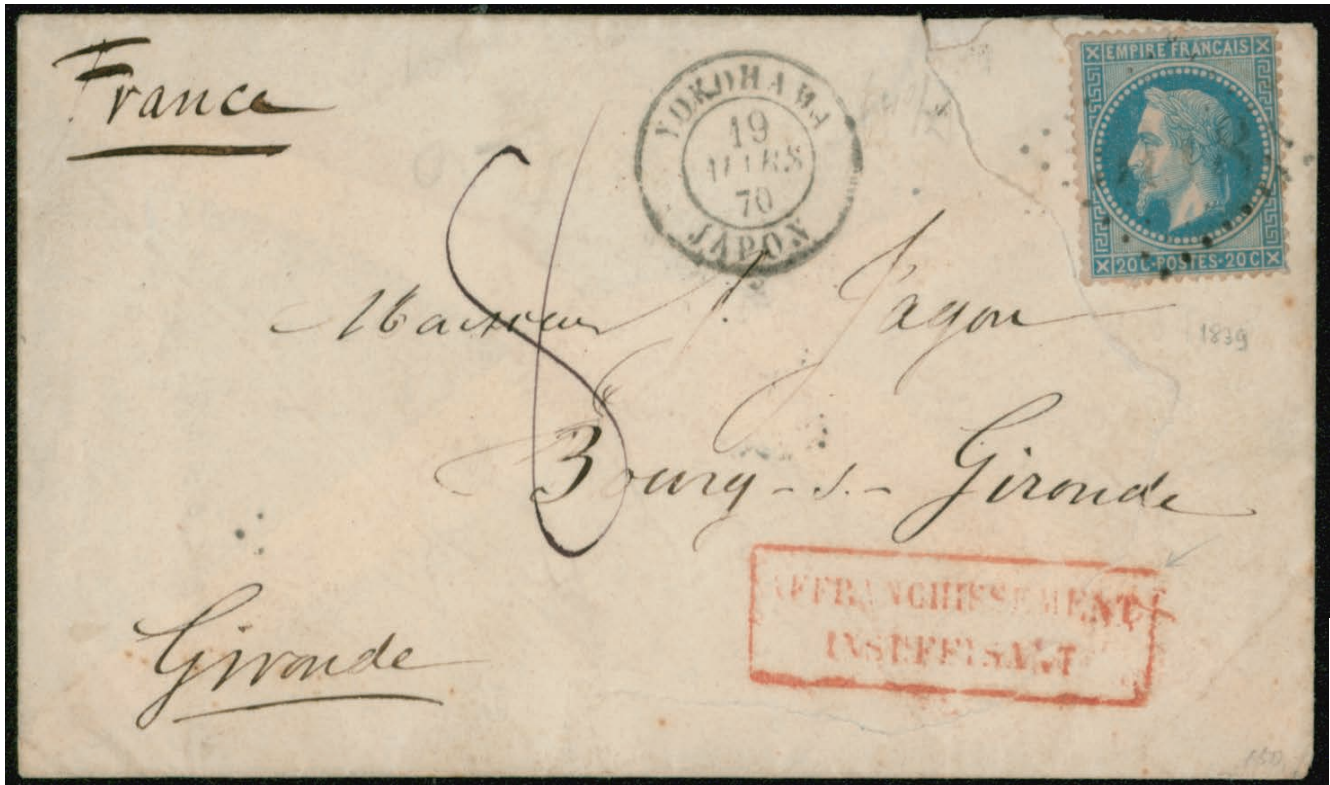 France
YOKOHAMA
19
MARS
70
JAPON
EMPIRE FRANCAIS
20C·POSTES·20C
8
Monsieur J. Jagou
1839
Bourg-s.-Gironde
AFFRANCHISSEMENT
INSUFFISANT
Gironde